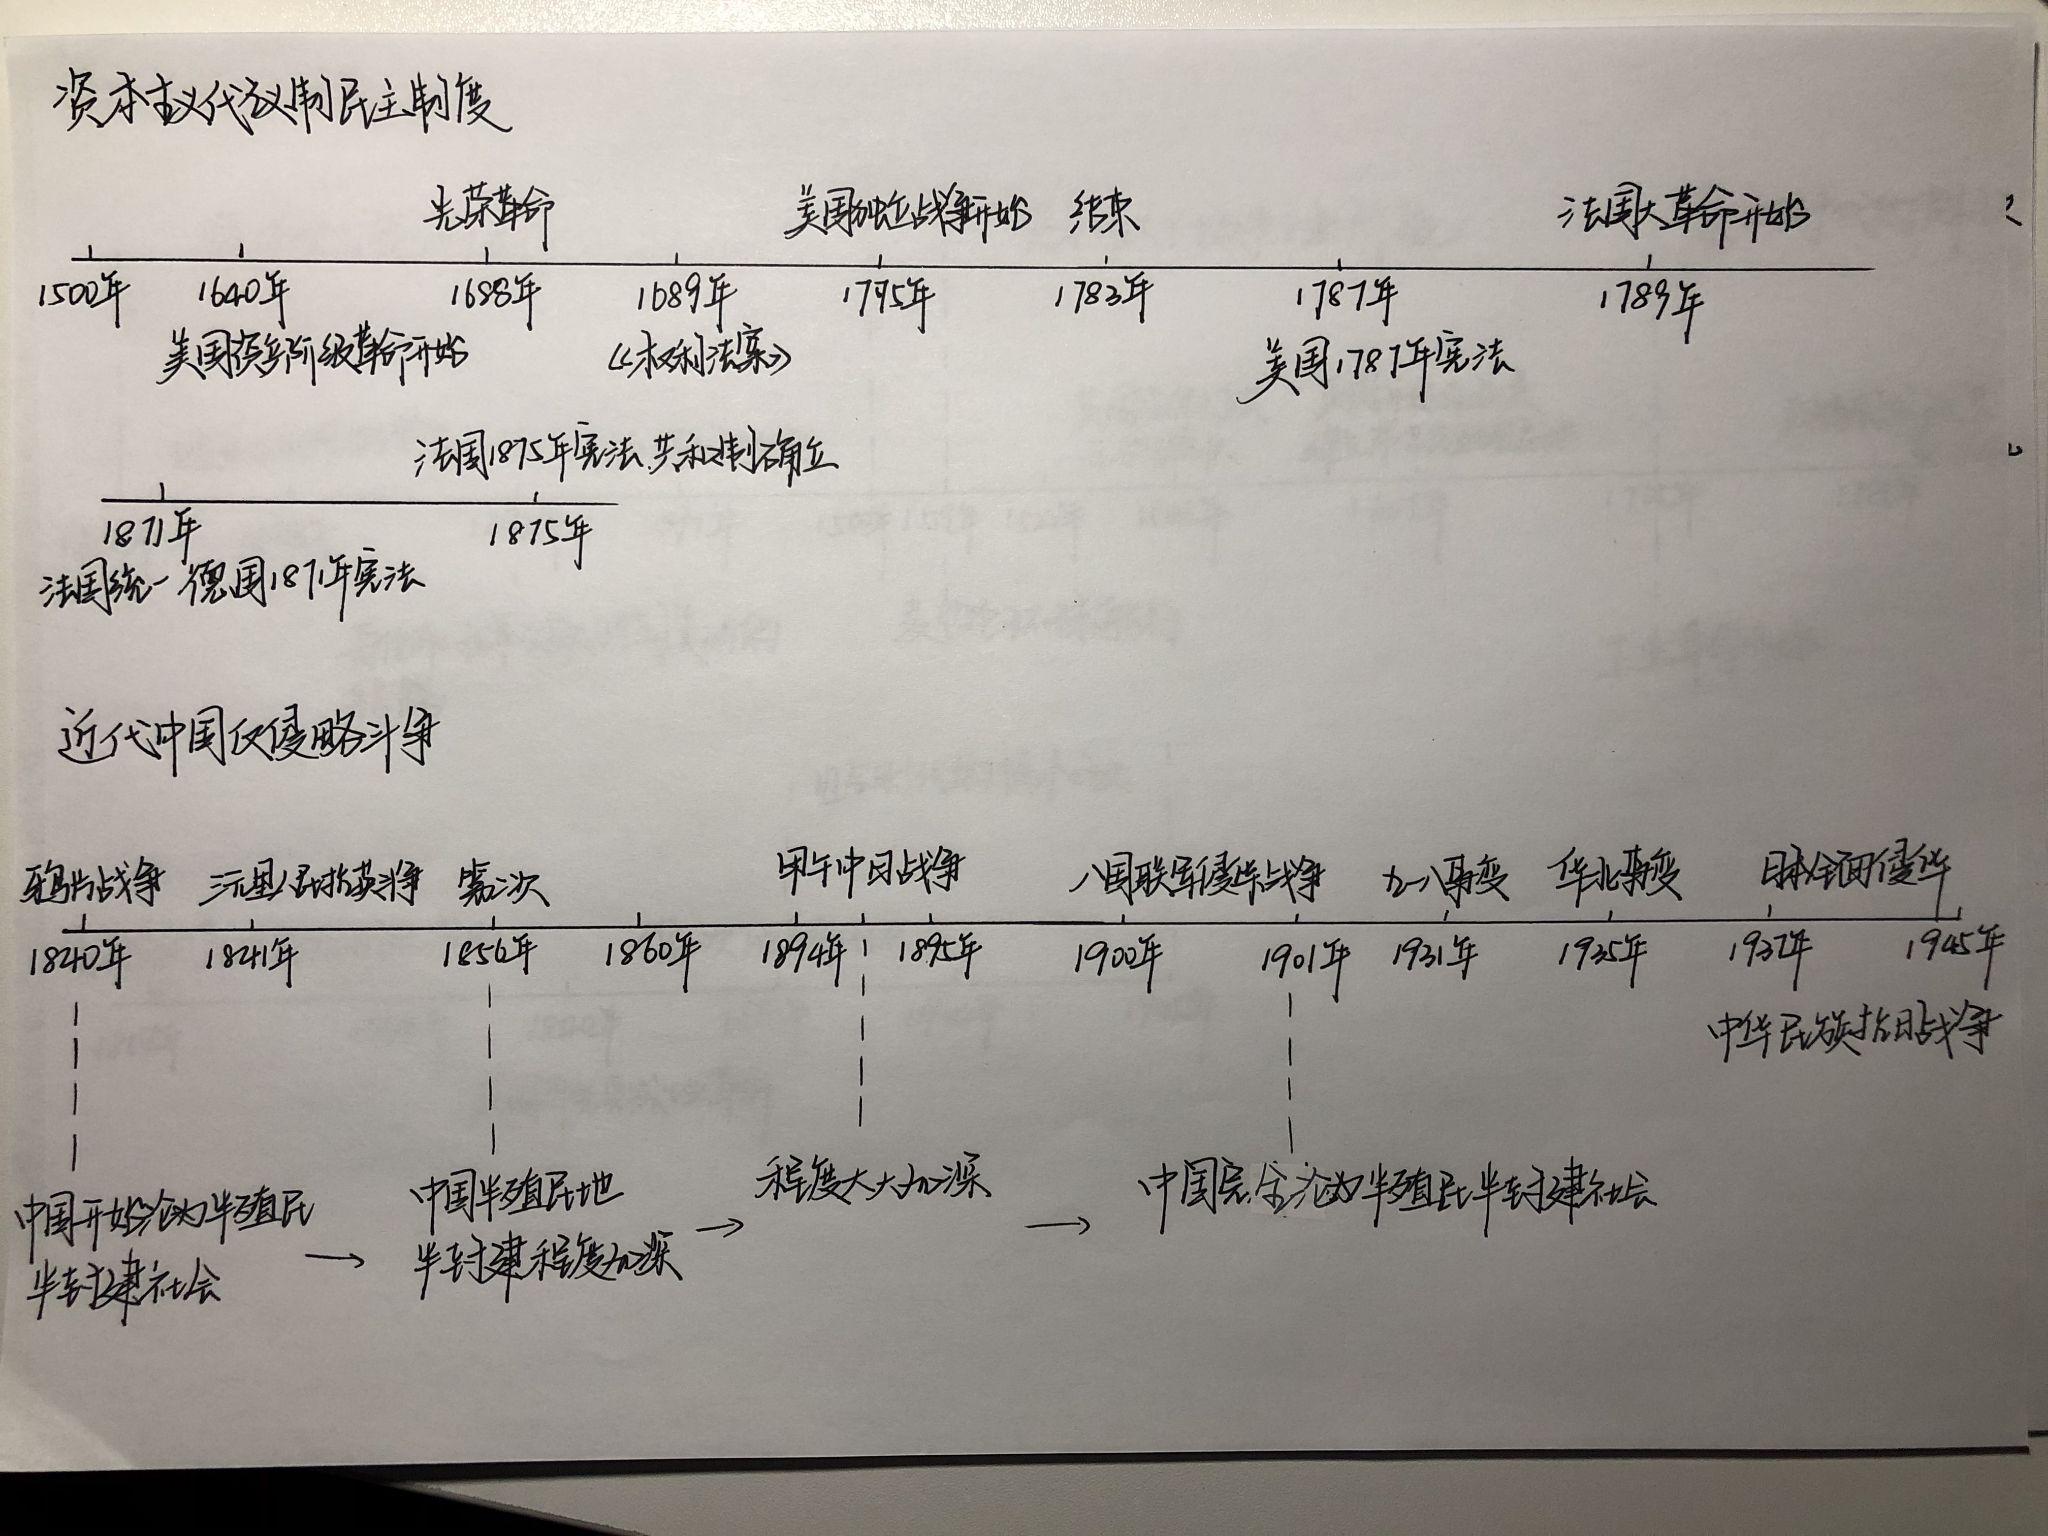 资本主义代议制民主制度
光荣革命 美国独立战争开始 结束 法国大革命开始
1500年 1640年 1688年 1689年 1775年 1783年 1787年 1789年
美国资产阶级革命开始 《权利法案》 美国1787年宪法
法国1875年宪法 共和制确立
1871年 1875年
法国统一 德国1871年宪法
近代中国反侵略斗争
鸦片战争 三元里人民抗英斗争 第二次 甲午中日战争 八国联军侵华战争 九一八事变 华北事变 日本全面侵华
1840年 1841年 1856年 1860年 1894年 1895年 1900年 1901年 1931年 1935年 1937年 1945年
中华民族抗日战争
中国开始沦为半殖民 → 中国半殖民地 → 程度大大加深 → 中国完全沦为半殖民半封建社会
半封建社会 半封建程度加深